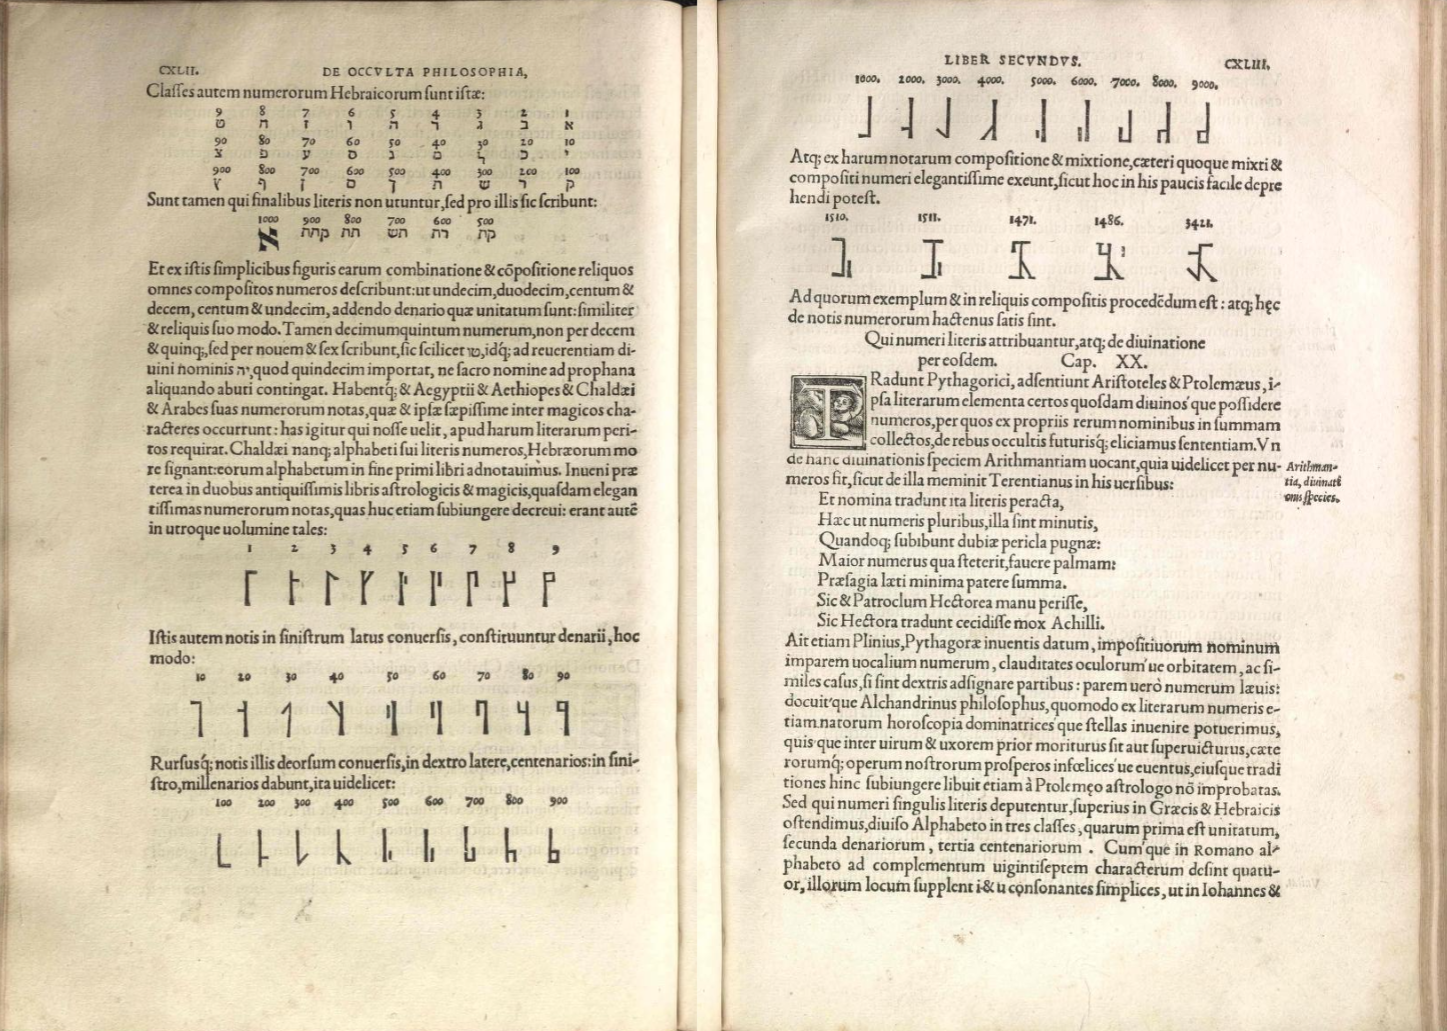 CXLII. DE OCCVLTA PHILOSOPHIA,
Classes autem numerorum Hebraicorum sunt istæ:
9 8 7 6 5 4 3 2 1
ט ח ז ו ה ד ג ב א
90 80 70 60 50 40 30 20 10
צ פ ע ס נ מ ל כ י
900 800 700 600 500 400 300 200 100
ץ ף ן ם ך ת ש ר ק
Sunt tamen qui finalibus literis non utuntur, sed pro illis sic scribunt:
1000 900 800 700 600 500
א קתת תת תש תר תק
Et ex istis simplicibus figuris earum combinatione & cõpositione reliquos
omnes compositos numeros describunt: ut undecim, duodecim, centum &
decem, centum & undecim, addendo denario quæ unitatum sunt: similiter
& reliquis suo modo. Tamen decimumquintum numerum, non per decem
& quinq;, sed per nouem & sex scribunt, sic scilicet טו, idq́; ad reuerentiam di-
uini nominis יה, quod quindecim importat, ne sacro nomine ad prophana
aliquando abuti contingat. Habentq́; & Aegyptii & Aethiopes & Chaldæi
& Arabes suas numerorum notas, quæ & ipsæ sæpissime inter magicos cha-
racteres occurrunt: has igitur qui nosse uelit, apud harum literarum peri-
tos requirat. Chaldæi nanq; alphabeti sui literis numeros, Hebræorum mo
re signant: eorum alphabetum in fine primi libri adnotauimus. Inueni præ
terea in duobus antiquissimis libris astrologicis & magicis, quasdam elegan
tissimas numerorum notas, quas huc etiam subiungere decreui: erant autẽ
in utroque uolumine tales:
1 2 3 4 5 6 7 8 9
Istis autem notis in sinistrum latus conuersis, constituuntur denarii, hoc
modo:
10 20 30 40 50 60 70 80 90
Rursusq́; notis illis deorsum conuersis, in dextro latere, centenarios: in sini-
stro, millenarios dabunt, ita uidelicet:
100 200 300 400 500 600 700 800 900
LIBER SECVNDVS. CXLIII.
1000. 2000. 3000. 4000. 5000. 6000. 7000. 8000. 9000.
Atq; ex harum notarum compositione & mixtione, cæteri quoque mixti &
compositi numeri elegantissime exeunt, sicut hoc in his paucis facile depre
hendi potest.
1510. 1511. 1471. 1486. 3421.
Ad quorum exemplum & in reliquis compositis procedẽdum est: atq; hęc
de notis numerorum hactenus satis sint.
Qui numeri literis attribuantur, atq; de diuinatione
per eosdem. Cap. XX.
TRadunt Pythagorici, adsentiunt Aristoteles & Ptolemæus, i-
psa literarum elementa certos quosdam diuinos'que possidere
numeros, per quos ex propriis rerum nominibus in summam
collectos, de rebus occultis futurisq́; eliciamus sententiam. Vn
de hanc diuinationis speciem Arithmantiam uocant, quia uidelicet per nu-
meros fit, sicut de illa meminit Terentianus in his uersibus:
Arithman-
tia, diuinati
onis species.
Et nomina tradunt ita literis peracta,
Hæc ut numeris pluribus, illa sint minutis,
Quandoq; subibunt dubiæ pericla pugnæ:
Maior numerus qua steterit, fauere palmam:
Præsagia læti minima patere summa.
Sic & Patroclum Hectorea manu perisse,
Sic Hectora tradunt cecidisse mox Achilli.
Ait etiam Plinius, Pythagoræ inuentis datum, impositiuorum nominum
imparem uocalium numerum, clauditates oculorum'ue orbitatem, ac si-
miles casus, si sint dextris adsignare partibus: parem uerò numerum læuis:
docuit'que Alchandrinus philosophus, quomodo ex literarum numeris e-
tiam natorum horoscopia dominatrices'que stellas inuenire poterimus,
quis que inter uirum & uxorem prior moriturus sit aut superuicturus, cæte
rorumq́; operum nostrorum prosperos infœlices'ue euentus, eiusque tradi
tiones hinc subiungere libuit etiam à Ptolemęo astrologo nõ improbatas.
Sed qui numeri singulis literis deputentur, superius in Græcis & Hebraicis
ostendimus, diuiso Alphabeto in tres classes, quarum prima est unitatum,
secunda denariorum, tertia centenariorum. Cum'que in Romano al-
phabeto ad complementum uigintiseptem characterum desint quatu-
or, illorum locum supplent i & u consonantes simplices, ut in Iohannes &